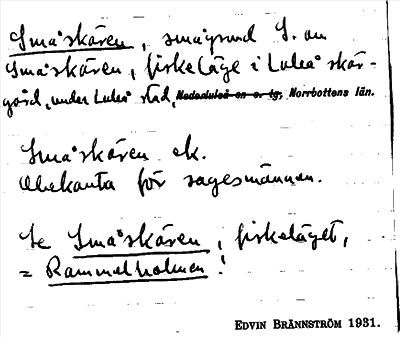 Småskären, små grund S. om
Småskären, fiskeläge i Luleå skär-
gård, under Luleå stad, Nederluleå sn o. tg, Norrbottens län.
Småskären ek.
Obekanta för sagesmännen.
Se Småskären, fiskeläget,
= Rammelholmen!
EDVIN BRÄNNSTRÖM 1931.